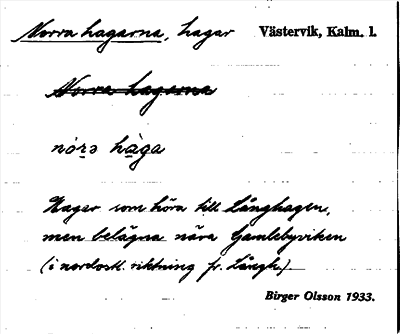 Norra hagarna, hagar Västervik, Kalm. l.
Norra hagarna
nórə hàga
Hagar som höra till Långhagen,
men belägna nära Gamlebyviken
(i nordostl. riktning fr. Långh.)
Birger Olsson 1933.